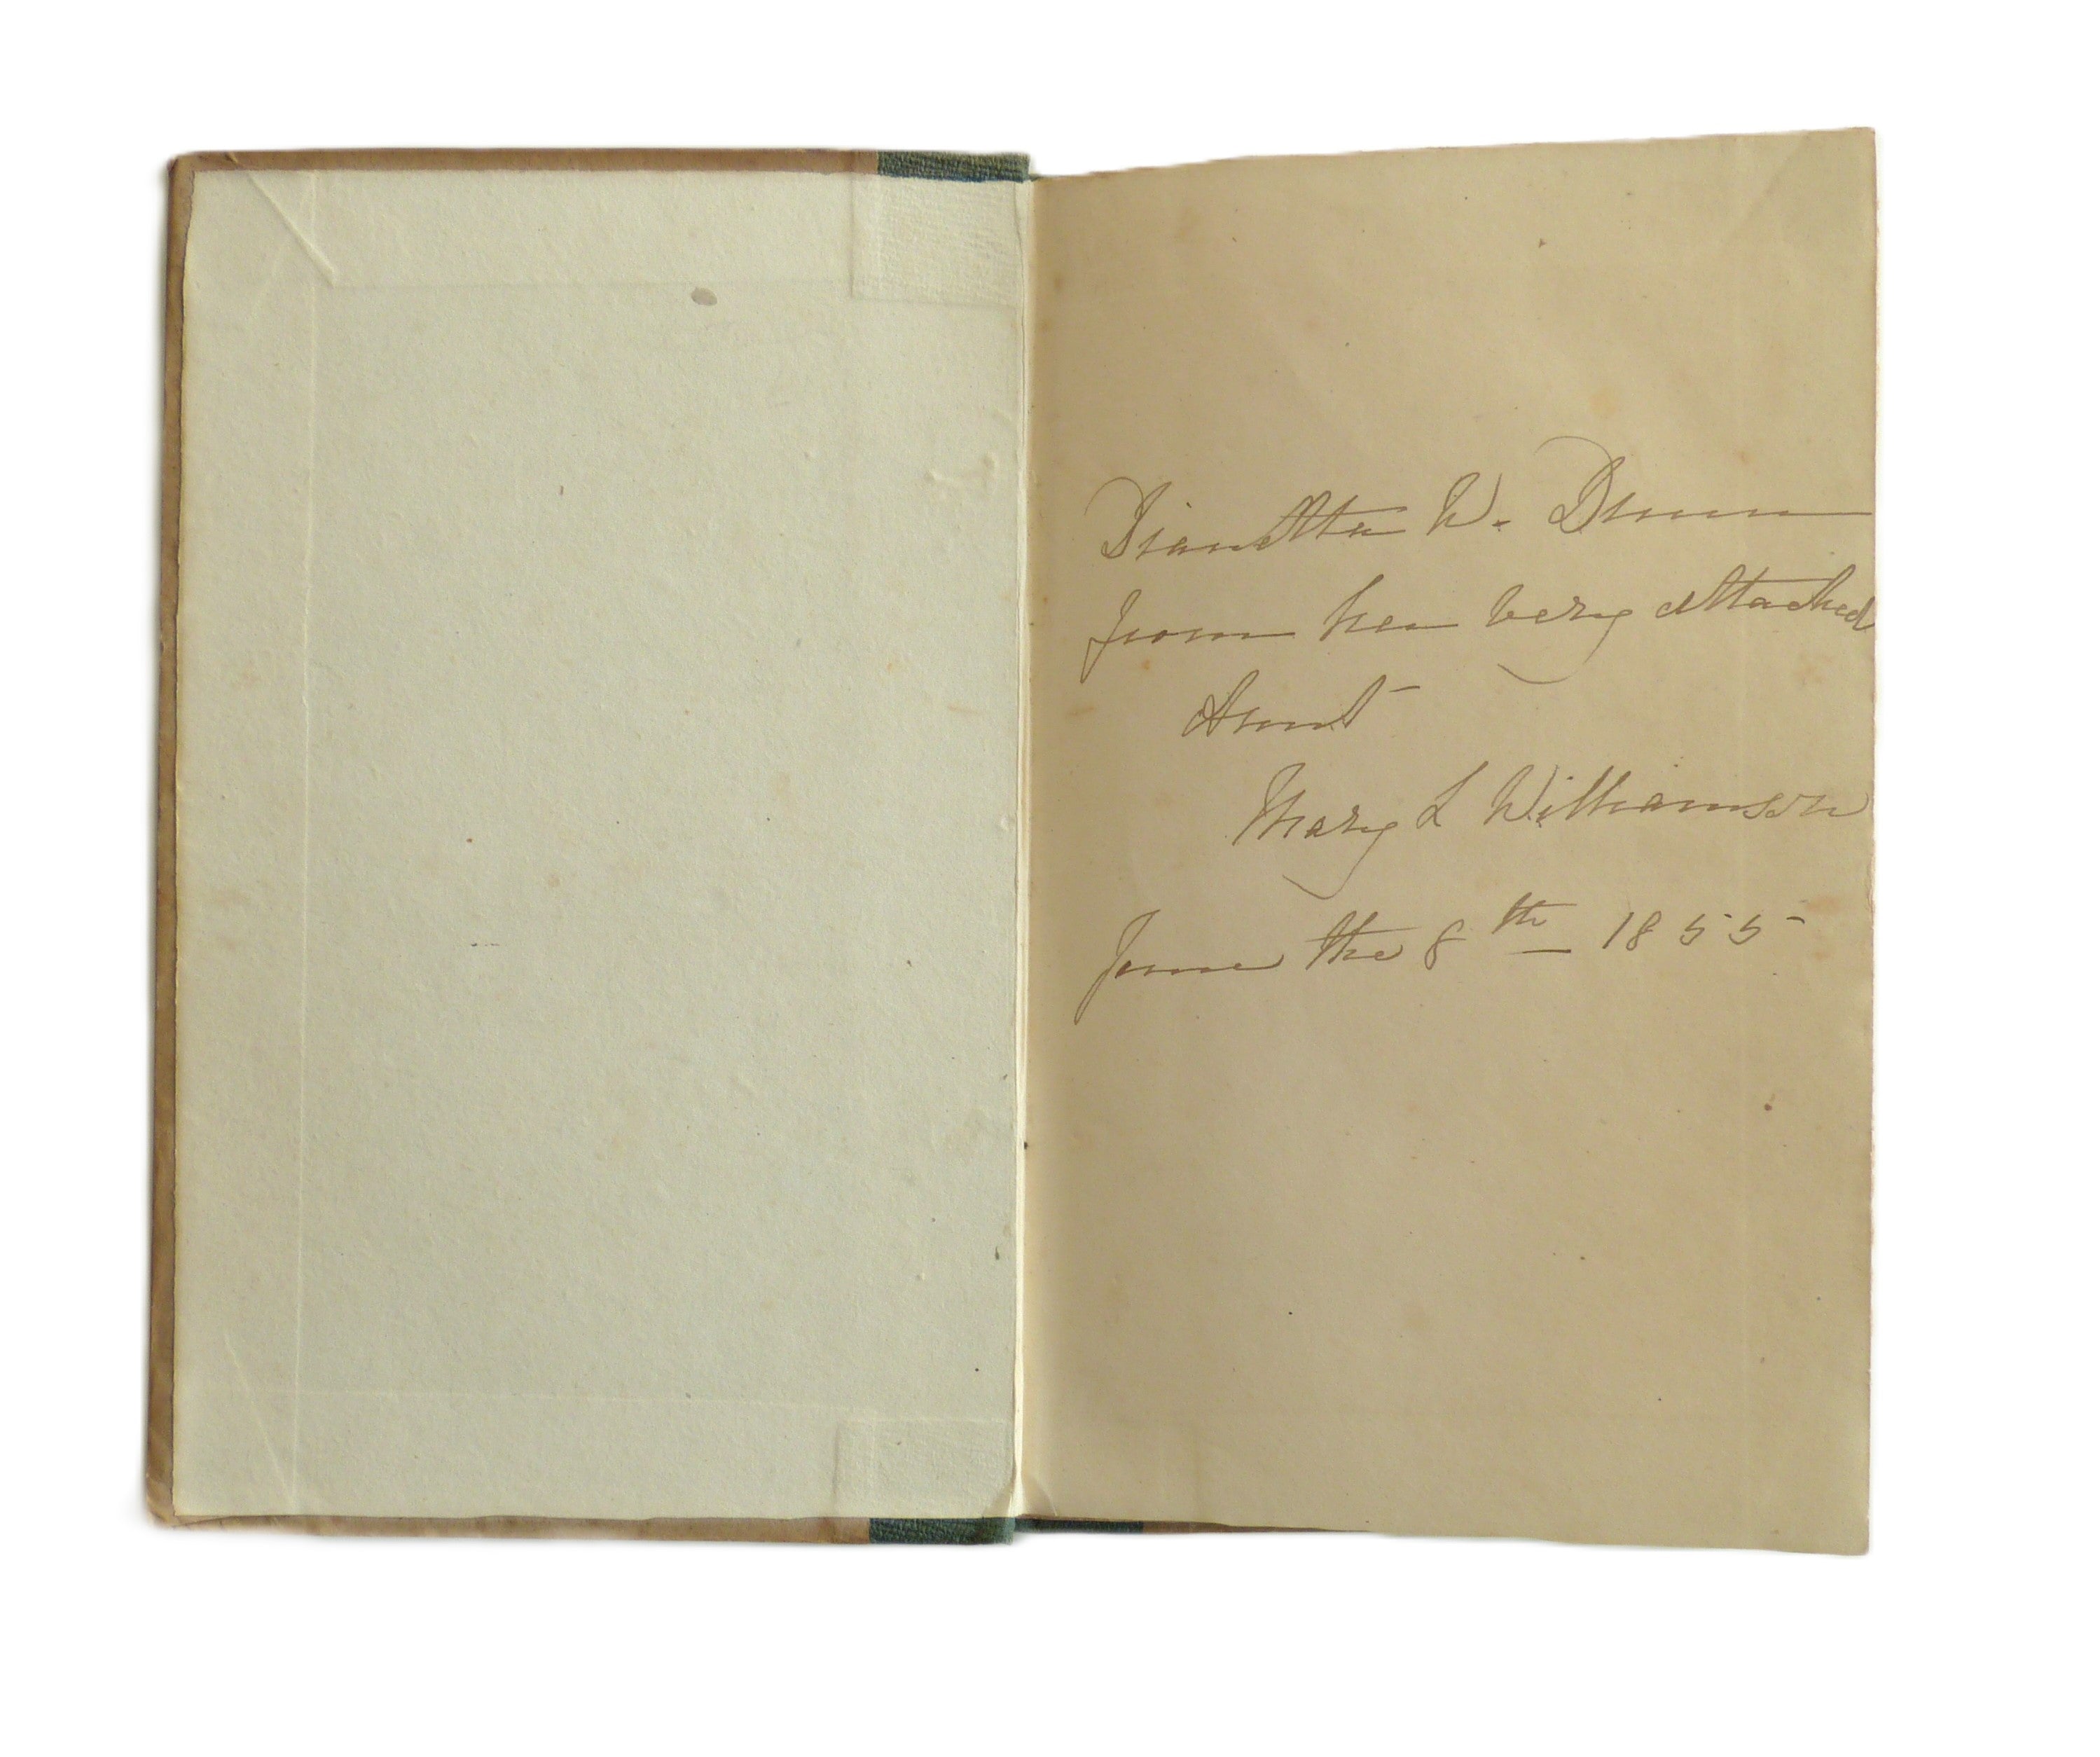 Dianetta W. Dunn
from her very attached
Aunt
Mary L Williamson
June the 8th 1855